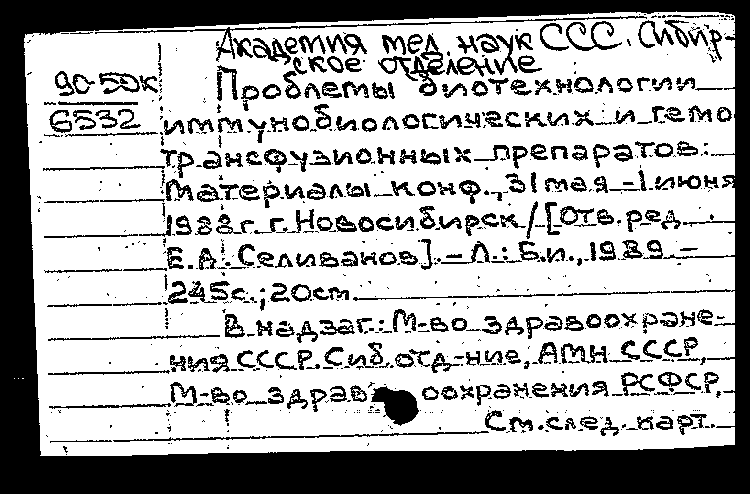 Академия мед. наук ССС. Сибир-
ское отделение
90-50к
6532
Проблемы биотехнологии
иммунобиологических и гемо
трансфузионных препаратов:
Материалы конф., 31 мая - 1 июня
1988 г. г. Новосибирск / [Отв. ред.
Е. А. Селиванов]. - Л.: Б.и., 1989. -
245с.; 20см.
В надзаг.: М-во здравоохране-
ния СССР. Сиб. отд-ние, АМН СССР,
М-во здравоохранения РСФСР,
См. след. карт.